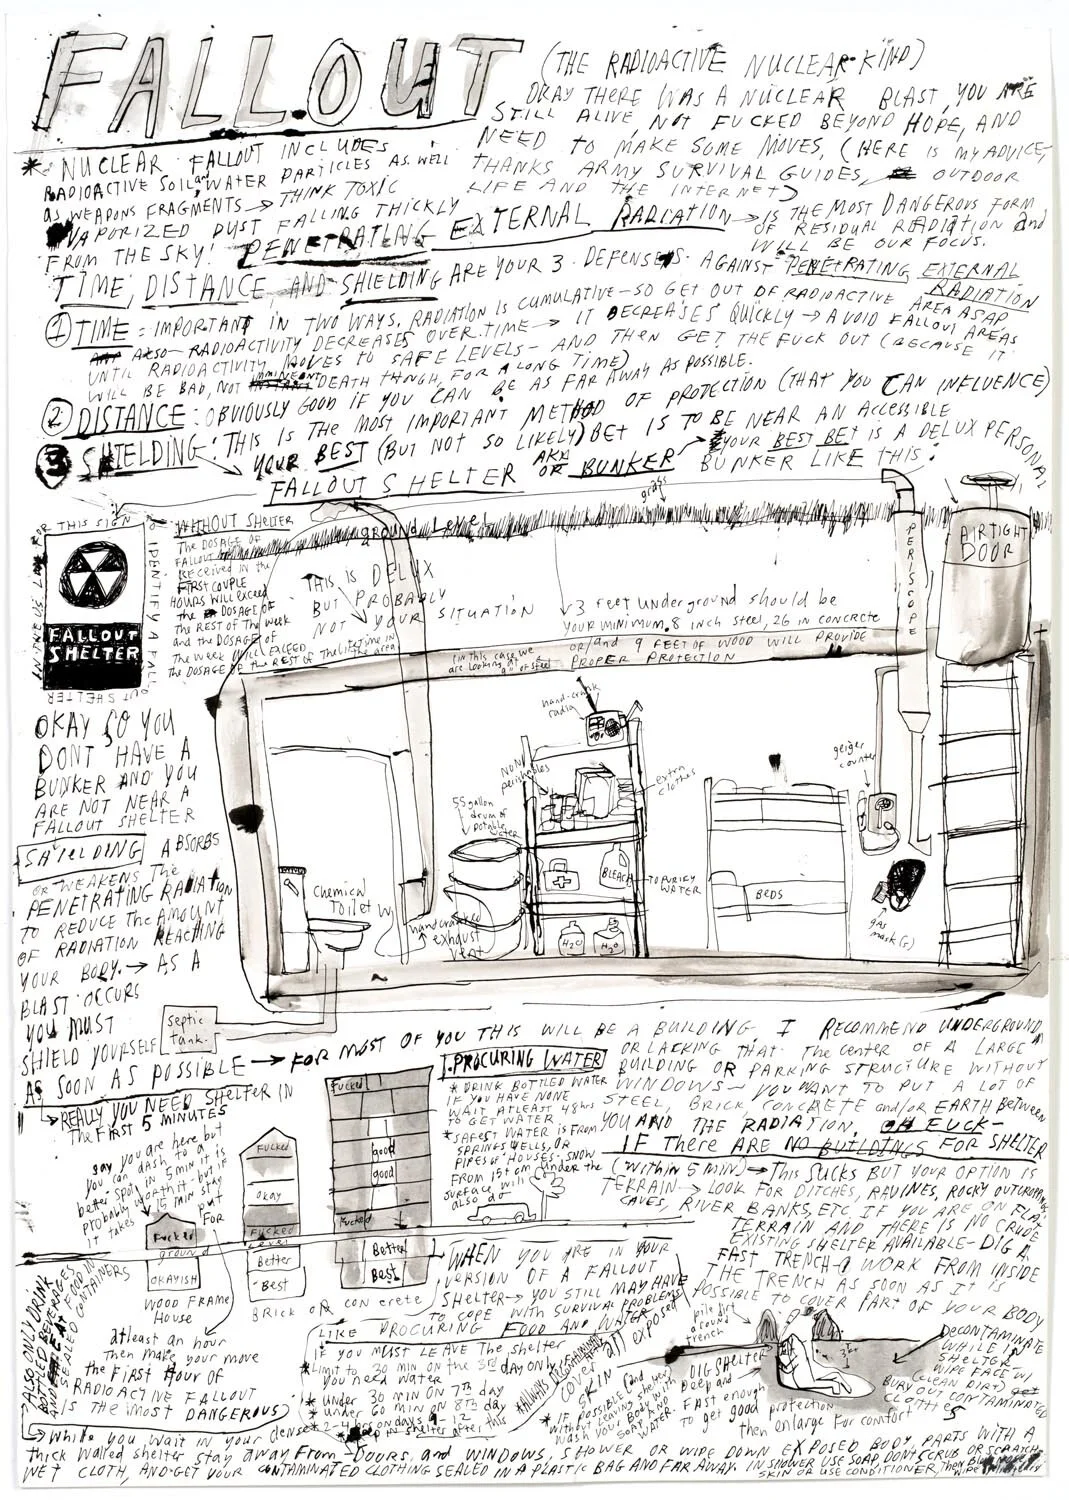 FALLOUT
(THE RADIOACTIVE NUCLEAR KIND)
OKAY THERE WAS A NUCLEAR BLAST, YOU ARE
STILL ALIVE, NOT FUCKED BEYOND HOPE, AND
NEED TO MAKE SOME MOVES, (HERE IS MY ADVICE,
THANKS ARMY SURVIVAL GUIDES, OUTDOOR
LIFE AND THE INTERNET)
* NUCLEAR FALLOUT INCLUDES
RADIOACTIVE SOIL and WATER PARTICLES AS WELL
as WEAPONS FRAGMENTS → THINK TOXIC
VAPORIZED DUST FALLING THICKLY
FROM THE SKY!
PENETRATING EXTERNAL RADIATION → IS THE MOST DANGEROUS FORM
OF RESIDUAL RADIATION and
WILL BE OUR FOCUS.
TIME, DISTANCE, AND SHIELDING ARE YOUR 3 DEFENSES AGAINST PENETRATING EXTERNAL
RADIATION
① TIME = IMPORTANT IN TWO WAYS. RADIATION IS CUMULATIVE - SO GET OUT OF RADIOACTIVE AREA ASAP
Also - RADIOACTIVITY DECREASES OVER TIME → IT DECREASES QUICKLY → AVOID FALLOUT AREAS
UNTIL RADIOACTIVITY MOVES TO SAFE LEVELS - AND THEN GET THE FUCK OUT (BECAUSE IT
WILL BE BAD, NOT IMMINENT DEATH THOUGH, FOR A LONG TIME)
② DISTANCE: OBVIOUSLY GOOD IF YOU CAN BE AS FAR AWAY AS POSSIBLE.
③ SHIELDING: THIS IS THE MOST IMPORTANT METHOD OF PROTECTION (THAT YOU CAN INFLUENCE)
YOUR BEST (BUT NOT SO LIKELY) BET IS TO BE NEAR AN ACCESSIBLE
FALLOUT SHELTER AKA OR BUNKER → YOUR BEST BET IS A DELUX PERSONAL
BUNKER LIKE THIS:
FOR THIS SIGN TO
IDENTIFY A FALL
OUT SHELTER
FALLOUT
SHELTER
WITHOUT SHELTER
The DOSAGE OF
FALLOUT
RECEIVED in the
FIRST COUPLE
HOURS WILL exceed
the DOSAGE OF
THE REST OF The week
and the DOSAGE of
The week WILL EXCEED
THE DOSAGE of the REST OF The lifetime in
the area
grass
ground level
THIS IS DELUX
BUT PROBABLY
NOT YOUR SITUATION
3 feet underground should be
YOUR MINIMUM. 8 inch steel, 26 in CONCRETE
OR/and 9 FEET OF WOOD WILL PROVIDE
PROPER PROTECTION
(in this case we
are looking at
9" of steel
PERISCOPE
AIRTIGHT
DOOR
hand-crank
radio
NON
perishables
extra
clothes
55 gallon
drum of
potable
water
BLEACH
→ TO PURIFY
WATER
H₂O
H₂O
BEDS
geiger
counter
gas
mask(s)
Chemical
Toilet
hand cranked
exhaust
vent
septic
Tank
OKAY SO YOU
DONT HAVE A
BUNKER AND YOU
ARE NOT NEAR A
FALLOUT SHELTER
SHIELDING ABSORBS
OR WEAKENS THE
PENETRATING RADIATION
TO REDUCE The AMOUNT
OF RADIATION REACHING
YOUR BODY. → AS A
BLAST OCCURS
YOU MUST
SHIELD YOURSELF
AS SOON AS POSSIBLE → FOR MOST OF YOU THIS WILL BE A BUILDING. I RECOMMEND UNDERGROUND,
OR LACKING THAT The CENTER OF A LARGE
BUILDING OR PARKING STRUCTURE WITHOUT
WINDOWS - YOU WANT TO PUT A LOT OF
STEEL, BRICK, CONCRETE and/or EARTH Between
YOU AND THE RADIATION. OH FUCK-
IF THERE ARE NO BUILDINGS FOR SHELTER
(WITHIN 5 MIN) → This SUCKS BUT YOUR OPTION IS
TERRAIN → LOOK FOR DITCHES, RAVINES, ROCKY OUTCROPPINGS
CAVES, RIVER BANKS, ETC. IF YOU ARE ON FLAT
TERRAIN AND THERE IS NO CRUDE
EXISTING SHELTER AVAILABLE - DIG A
FAST TRENCH - WORK FROM INSIDE
THE TRENCH AS SOON AS IT IS
POSSIBLE TO COVER PART OF YOUR BODY
→ REALLY YOU NEED SHELTER IN
The FIRST 5 MINUTES
say you are here but
you can dash to a
better spot in 5 min it is
probably worth it - but if
it takes 15 min stay
put
FOR
atleast an hour
Then make your move
the First Hour of
RADIOACTIVE FALLOUT
IS THE MOST DANGEROUS)
Fucked
ground
OKAYISH
WOOD FRAME
House
FUCKED
okay
Fucked
level
Better
Best
Fucked
good
good
Fucked
Better
Best
BRICK OR CONCRETE
PROCURING WATER
* DRINK BOTTLED WATER
IF YOU HAVE NONE
WAIT ATLEAST 48hrs
TO GET WATER
* SAFEST WATER IS FROM
SPRINGS, WELLS, OR
PIPES OF HOUSES. SNOW
FROM 15+ cm under the
surface will
also do
WHEN YOU ARE IN YOUR
VERSION OF A FALLOUT
SHELTER → YOU STILL MAY HAVE
TO COPE WITH SURVIVAL PROBLEMS
LIKE PROCURING FOOD AND WATER
IF YOU MUST LEAVE The shelter
* Limit to 30 min on the 3rd day only
if You need water
* under 30 min ON 7th day
* under 60 min ON 8th day
* 2-4 hrs on days 9-12
* in shelter after this
ALWAYS
COVER ALL EXPOSED
SKIN
* IF POSSIBLE (and
without leaving shelter)
WASH YOUR BODY WITH
SOAP and
WATER.
pile dirt
around
trench
DIG SHELTER
Deep and
FAST enough
to get good protection
then enlarge for comfort
DECONTAMINATE
WHILE IN
SHELTER -
WIPE FACE w/
(CLEAN DIRT)
BURY OUT CONTAMINATED
CLOTHES
ALSO ONLY DRINK
BOTTLED BEVERAGES
AND EAT FOOD IN
SEALED CONTAINERS
→ While you wait in your dense
thick walled shelter stay away From DOORS, and WINDOWS, SHOWER OR WIPE DOWN EXPOSED BODY PARTS WITH A
WET CLOTH, AND GET YOUR CONTAMINATED CLOTHING SEALED IN A PLASTIC BAG AND FAR AWAY. IN SHOWER USE SOAP, DONT SCRUB OR SCRATCH
SKIN OR USE CONDITIONER, then